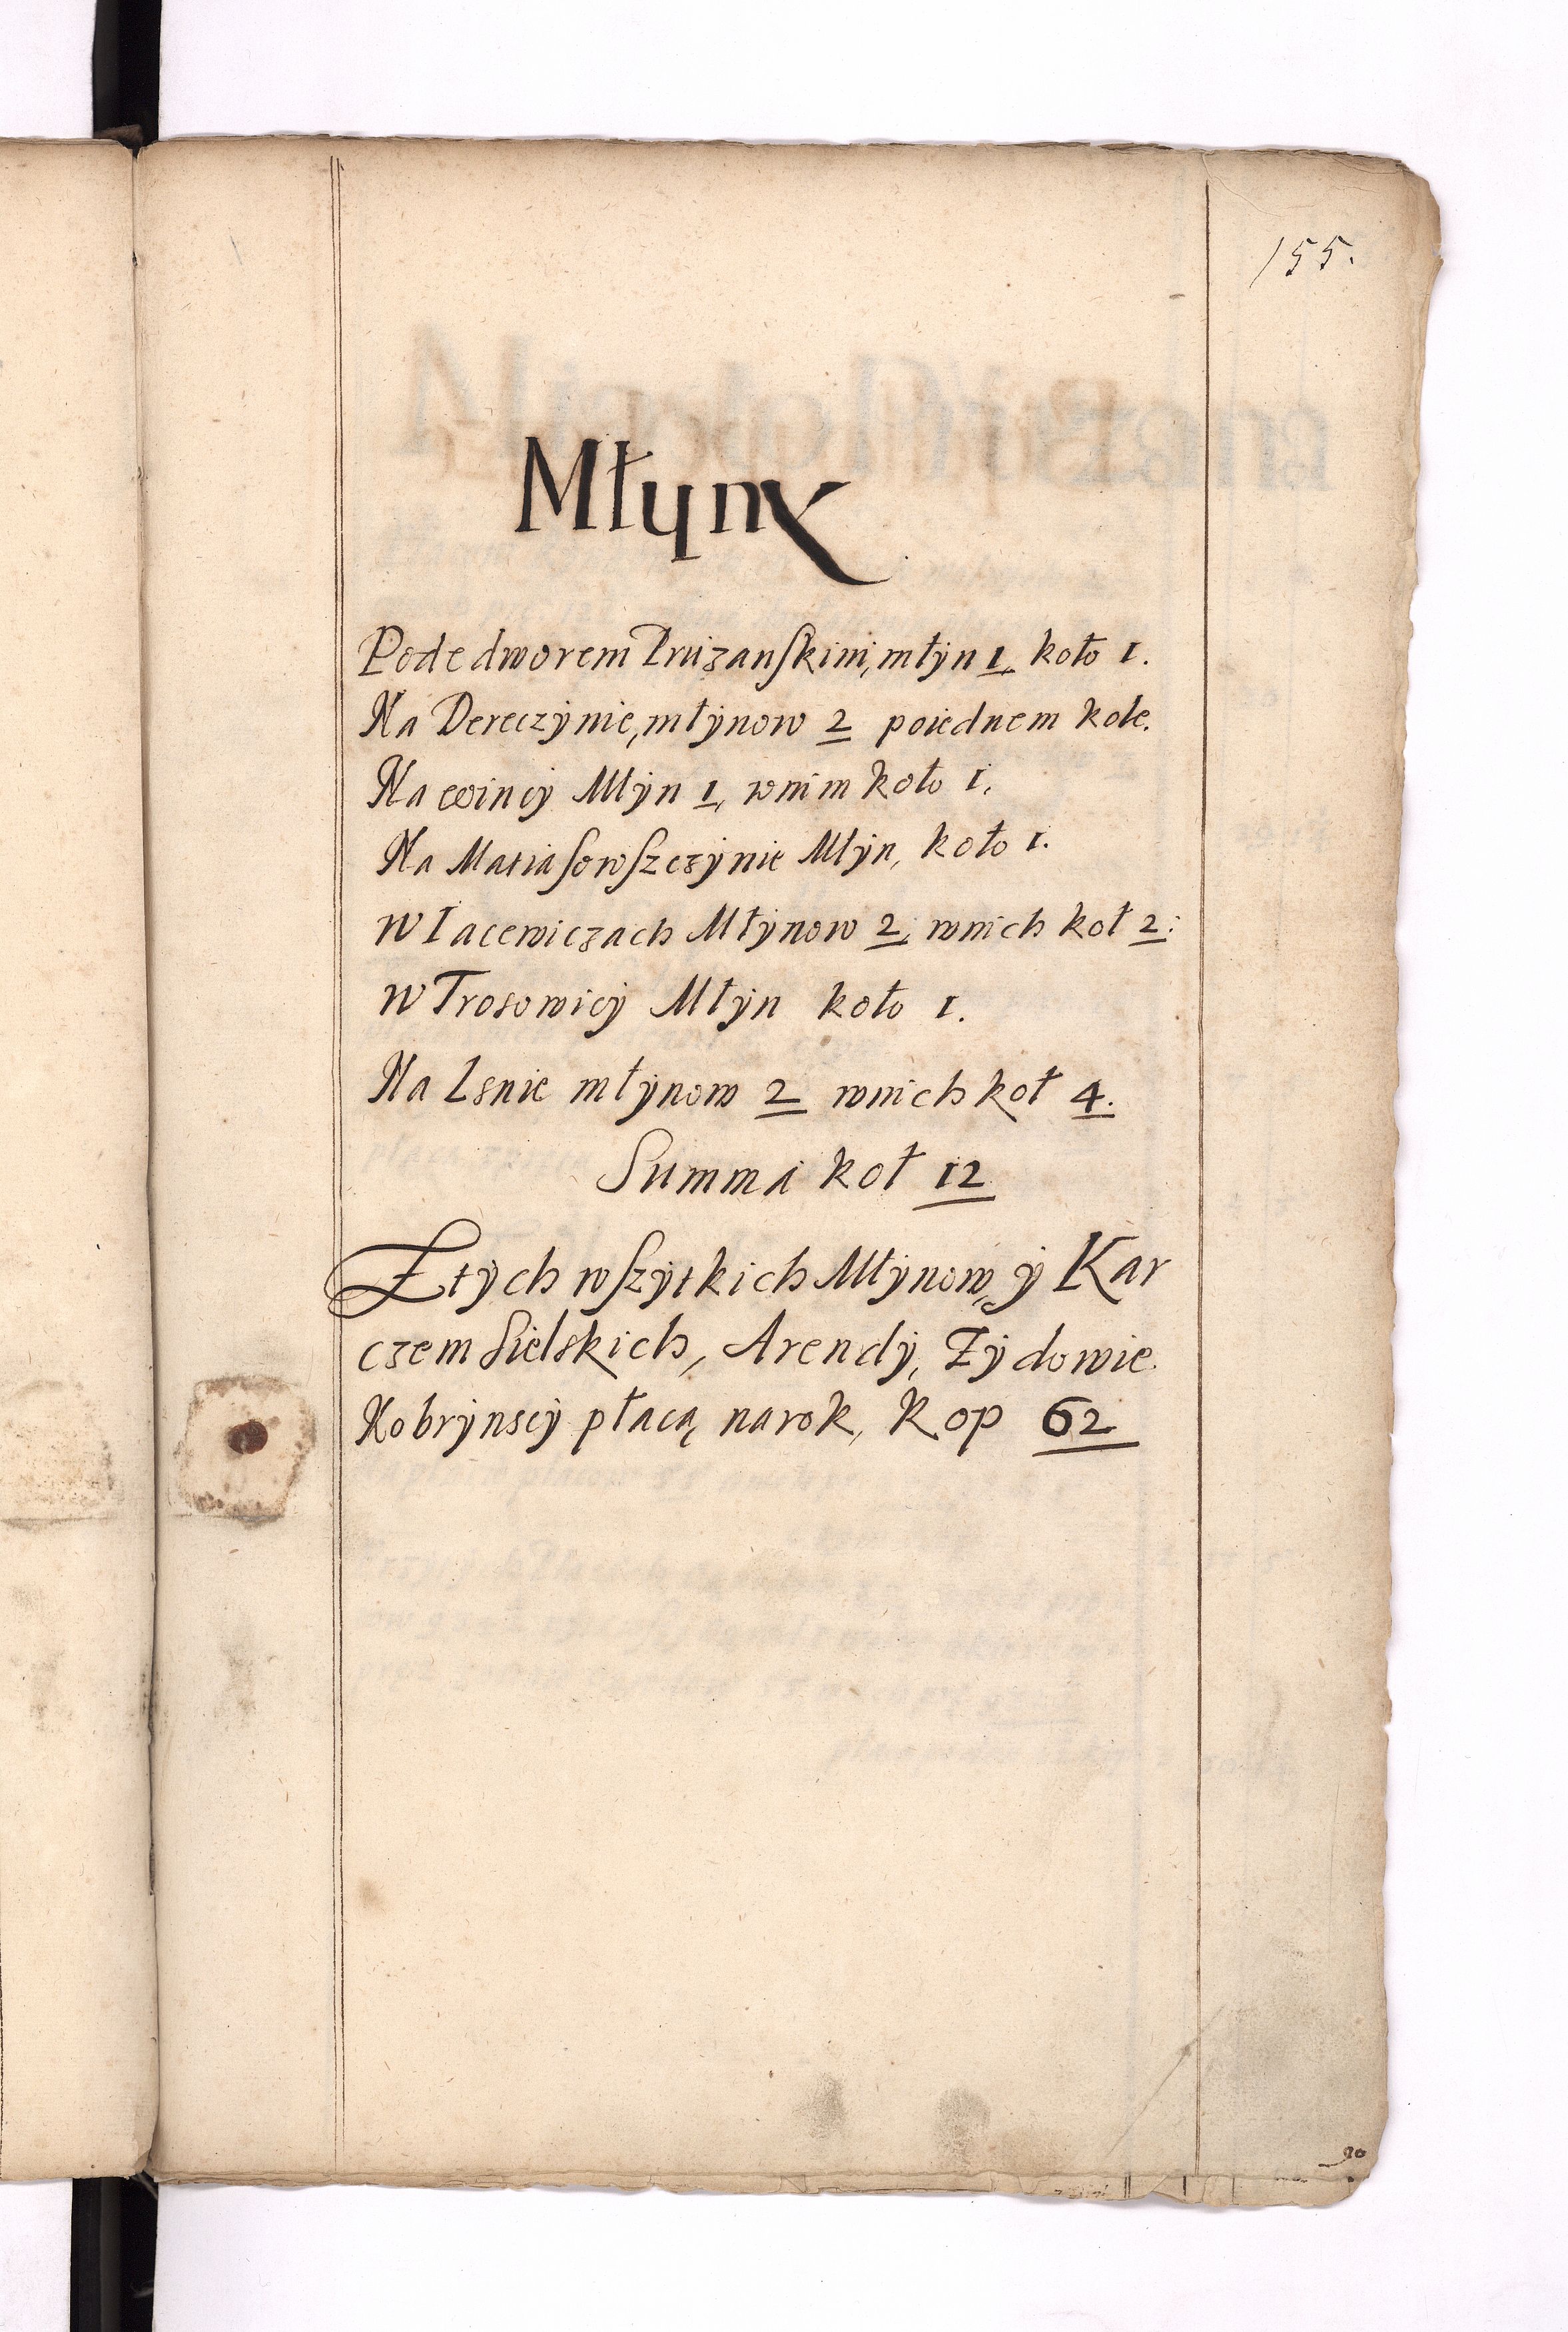 155.
Młyny
Pode dworem Pruzanskim, młyn 1, koło 1.
Na Dereczÿnie, młÿnow 2 poiednem kole.
Na wincÿ Młÿn 1, wnim koło 1.
Na Matiasowszczÿnie Młÿn, koło 1.
W Iacewiczach Młÿnow 2, wnich koł 2.
W Trosowicÿ Młÿn koło 1.
Na Lsnie młÿnow 2 wnich koł 4.
Summa koł 12
Ztÿch wszÿtkich Młÿnow, ÿ Kar
czem Sielskich, Arendÿ, Zÿdowie
Kobrÿnscÿ płacą narok, kop 62